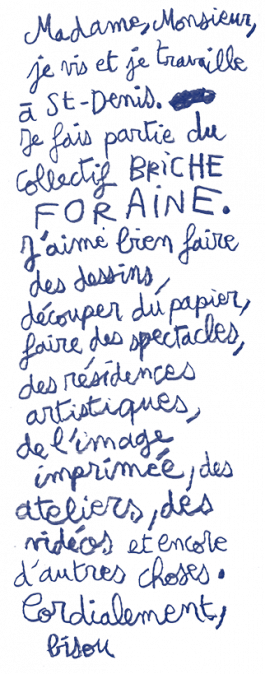 Madame, Monsieur,
je vis et je travaille
à St-Denis.
Je fais partie du
collectif BRiCHE
FORAiNE.
J'aime bien faire
des dessins,
découper du papier,
faire des spectacles,
des résidences
artistiques,
de l'image
imprimée, des
ateliers, des
vidéos et encore
d'autres choses.
Cordialement,
bisou